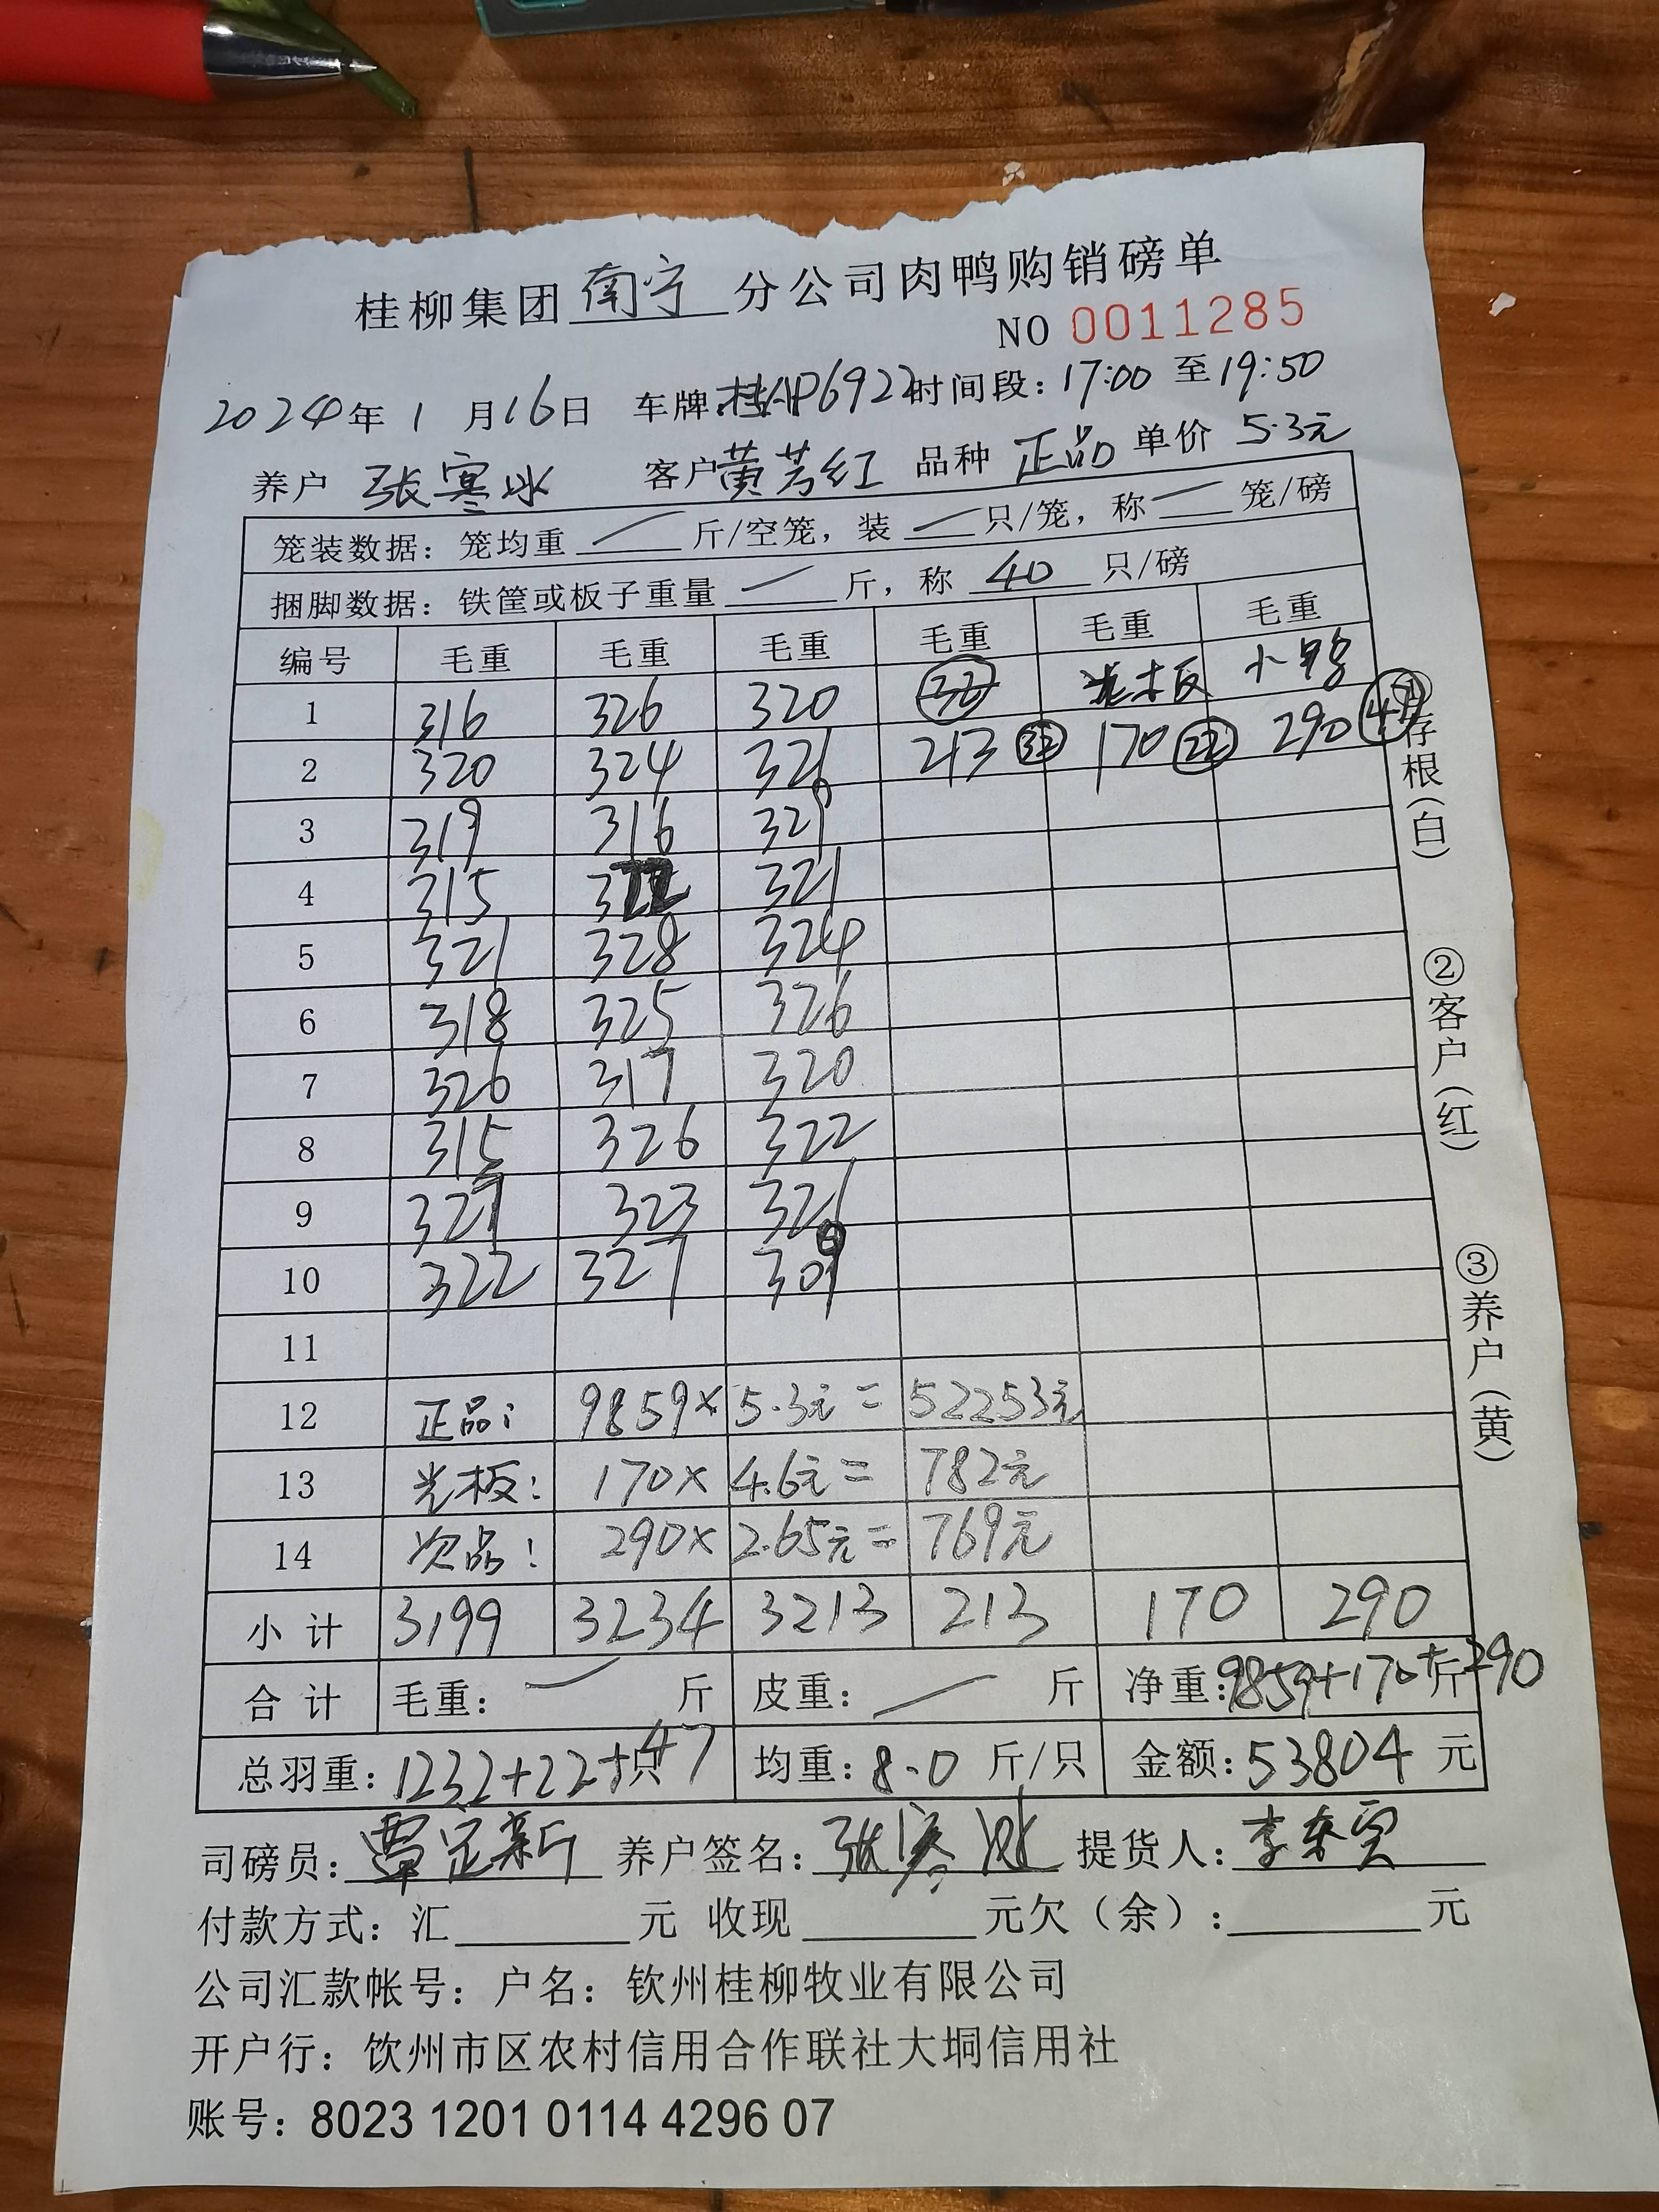 桂柳集团南宁分公司肉鸭购销磅单
NO 0011285
2024年1月16日 车牌:桂AP6922 时间段:17:00至19:50
养户 张寒冰 客户 黄芳红 品种 正品 单价 5.3元
笼装数据:笼均重 — 斤/空笼,装 — 只/笼,称 — 笼/磅
捆脚数据:铁筐或板子重量 — 斤,称 40 只/磅
编号 毛重 毛重 毛重 毛重 毛重 毛重
1 316 326 320 光板 小鸭
2 320 324 321 213 32 170 22 290 47
3 319 316 329
4 315 322 321
5 321 328 324
6 318 325 326
7 326 317 320
8 315 326 322
9 327 323 321
10 322 327 309
11
12 正品: 9859× 5.3元= 52253元
13 光板: 170× 4.6元= 782元
14 次品: 290× 2.65元= 769元
小计 3199 3234 3213 213 170 290
合计 毛重: — 斤 皮重: — 斤 净重:9859+170+290斤
总羽重:1232+22+47只 均重:8.0斤/只 金额:53804元
司磅员:覃定新 养户签名:张寒冰 提货人:
付款方式:汇 元 收现 元欠(余): 元
公司汇款帐号:户名:钦州桂柳牧业有限公司
开户行:饮州市区农村信用合作联社大垌信用社
账号:8023 1201 0114 4296 07
①存根(白)
②客户(红)
③养户(黄)